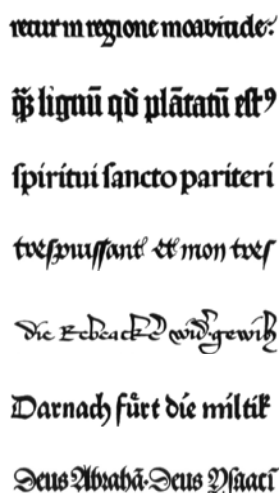 retur in regione moabitide:
lignū qd̄ plātatū est
ſpiritui ſancto pariteri
treſpuiſſant et mon treſ
die gewiß
Darnach fuͤrt die miltik
Deus Abrahā·Deus Yſaaci